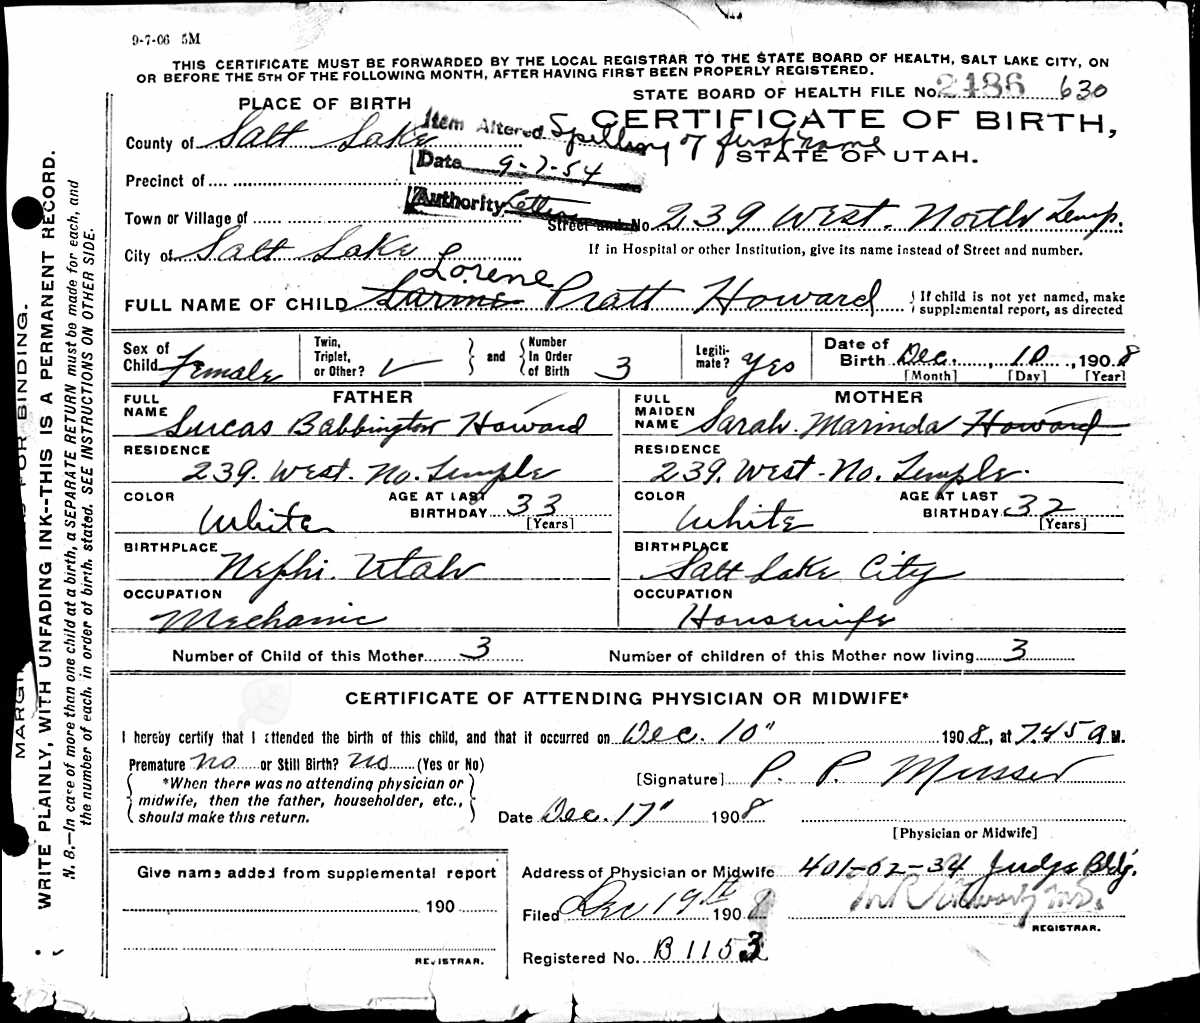 9-7-06 5M
THIS CERTIFICATE MUST BE FORWARDED BY THE LOCAL REGISTRAR TO THE STATE BOARD OF HEALTH, SALT LAKE CITY, ON
OR BEFORE THE 5TH OF THE FOLLOWING MONTH, AFTER HAVING FIRST BEEN PROPERLY REGISTERED.
STATE BOARD OF HEALTH FILE No. 2486 630
PLACE OF BIRTH
CERTIFICATE OF BIRTH,
STATE OF UTAH.
Item Altered Spelling of first name
Date 9-7-54
Authority Letter
County of Salt Lake
Precinct of
Town or Village of
Street and No 239 West. North Temp.
City of Salt Lake
If in Hospital or other Institution, give its name instead of Street and number.
Lorene
FULL NAME OF CHILD Larme Pratt Howard
If child is not yet named, make
supplemental report, as directed
Sex of Child Female
Twin, Triplet, or Other? ✓
and
Number In Order of Birth 3
Legiti-mate? yes
Date of Birth Dec. 10, 1908
[Month] [Day] [Year]
FATHER
FULL NAME Lucas Babbington Howard
RESIDENCE
239. West. No. Temple
COLOR White
AGE AT LAST BIRTHDAY 33
[Years]
BIRTHPLACE
Nephi. Utah
OCCUPATION
Mechanic
MOTHER
FULL MAIDEN NAME Sarah. Marinda Howard
RESIDENCE
239. West. No. Temple.
COLOR White
AGE AT LAST BIRTHDAY 32
[Years]
BIRTHPLACE
Salt Lake City
OCCUPATION
Housewife
Number of Child of this Mother 3
Number of children of this Mother now living 3
CERTIFICATE OF ATTENDING PHYSICIAN OR MIDWIFE*
I hereby certify that I attended the birth of this child, and that it occurred on Dec. 10" 1908, at 7.45 a M.
Premature no or Still Birth? no (Yes or No)
*When there was no attending physician or
midwife, then the father, householder, etc.,
should make this return.
[Signature] P. P. Musser
Date Dec. 17" 1908
[Physician or Midwife]
Give name added from supplemental report
190
REGISTRAR.
Address of Physician or Midwife 401-02-34 Judge Bldg.
Filed Dec 19th 1908
REGISTRAR.
Registered No. B 1153
MARGIN FOR BINDING.
WRITE PLAINLY, WITH UNFADING INK--THIS IS A PERMANENT RECORD.
N. B.—In case of more than one child at a birth, a SEPARATE RETURN must be made for each, and
the number of each, in order of birth, stated. SEE INSTRUCTIONS ON OTHER SIDE.